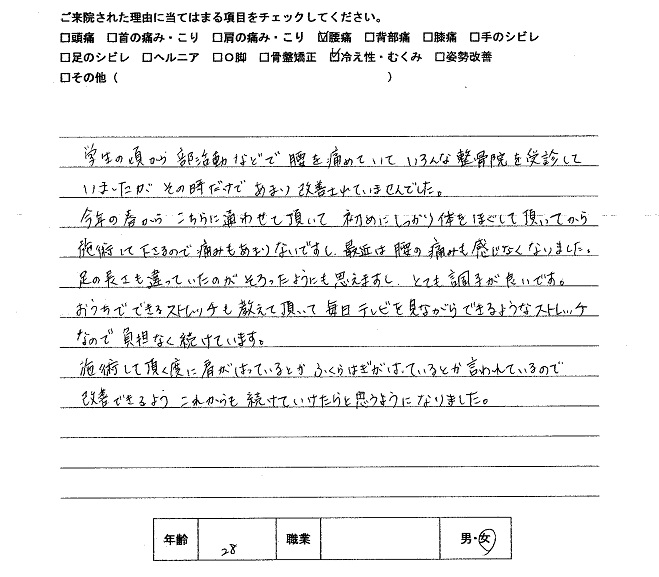 ご来院された理由に当てはまる項目をチェックしてください。
□頭痛 □首の痛み・こり □肩の痛み・こり ☑腰痛 □背部痛 □膝痛 □手のシビレ
□足のシビレ □ヘルニア □O脚 □骨盤矯正 ☑冷え性・むくみ □姿勢改善
□その他（ ）
学生の頃から 部活動などで 腰を痛めていて いろんな整骨院を受診して
いましたが その時だけで あまり改善されていませんでした。
今年の春から こちらに通わせて頂いて 初めにしっかり体をほぐして頂いてから
施術して下さるので痛みもあまりないですし、最近は腰の痛みも感じなくなりました。
足の長さも違っていたのが そろったようにも思えますし、とても調子が良いです。
おうちでできるストレッチも教えて頂いて毎日テレビを見ながらできるようなストレッチ
なので負担なく続けています。
施術して頂く度に肩がはっているとか ふくらはぎがはっているとか言われているので
改善できるよう これからも続けていけたらと思うようになりました。
年齢 28 職業 男・女